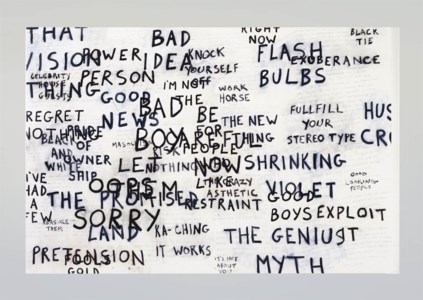 THAT
BAD
RIGHT
NOW
BLACK
TIE
VISION
POWER
IDEA
KNOCK
YOURSELF
OFF
FLASH
BULBS
EXUBERANCE
CELEBRITY
HOUSE
GUESTS
THING
PERSON
I'M NOT
THE
WORK
HORSE
GOOD
NEWS
BAD
BOY
BE
FOR
THE NEW
THING
FULLFILL
YOUR
STEREO TYPE
REGRET
NOTHING
PRIDE
OF
OWNER
SHIP
BLACK
AND
WHITE
PEOPLE
HUS
LET
NOW
SHRINKING
VIOLET
I'VE
HAD
A
FEW
OOPS
SORRY
THE PROMISED
LAND
LIKE
CRAZY
ASTHETIC
RESTRAINT
GOOD
BOYS EXPLOIT
KA-CHING
IT WORKS
THE GENIUS
MYTH
PRETENSION
FOOLS
GOLD
IT'S NOT
ABOUT
YOU